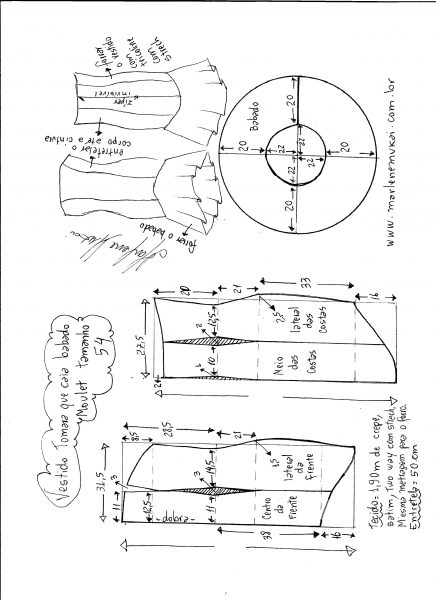 Vestido Tomara que caia babado
Moulet tamanho
54
forrar
o vestido
com
tricoline
com
strech
zíper
invisível
entretelar o
corpo até a cintura
forrar o babado
Babado
20
20
20
20
22
22
22
22
www.marlenemukai.com.br
27,5
2
20
21
33
16
2
10
10,5
2,5
Meio
das
Costas
lateral
das
Costas
31,5
8,5
28,5
21
11
3
12,5
3
11
10,5
3,5
-dobra-
Centro
da
frente
lateral
da
frente
38
16
Tecido = 1,90m de crepe,
Satim, Two way com strech,
Mesma metragem para o forro.
Entretela = 50 cm